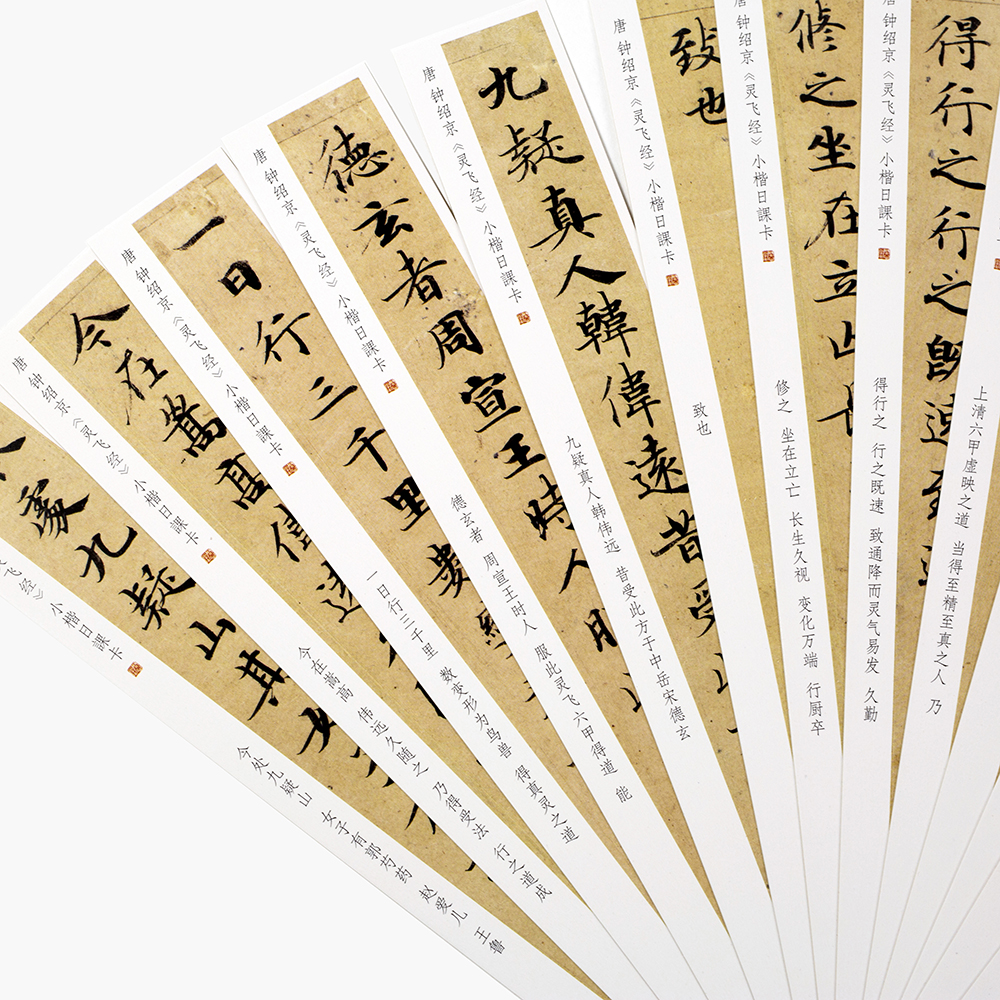 上清六甲虚映之道 当得至精至真之人 乃
得行之行之既速
唐 钟绍京《灵飞经》小楷日課卡
得行之 行之既速 致通降而灵气易发 久勤
修之坐在立亡長
唐 钟绍京《灵飞经》小楷日課卡
修之 坐在立亡 长生久视 变化万端 行厨卒
致也
唐 钟绍京《灵飞经》小楷日課卡
致也
九疑真人韓偉遠昔受
唐 钟绍京《灵飞经》小楷日課卡
九疑真人韩伟远 昔受此方于中岳宋德玄
德玄者周宣王時人服
唐 钟绍京《灵飞经》小楷日課卡
德玄者 周宣王时人 服此灵飞六甲得道 能
一日行三千里數
唐 钟绍京《灵飞经》小楷日課卡
一日行三千里 数变形为鸟兽 得真灵之道
今在嵩高偉遠
唐 钟绍京《灵飞经》小楷日課卡
今在嵩高 伟远久随之 乃得受法 行之道成
處九疑山其女
飞经》小楷日課卡
今处九疑山 女子有郭芍药 赵爱儿 王鲁